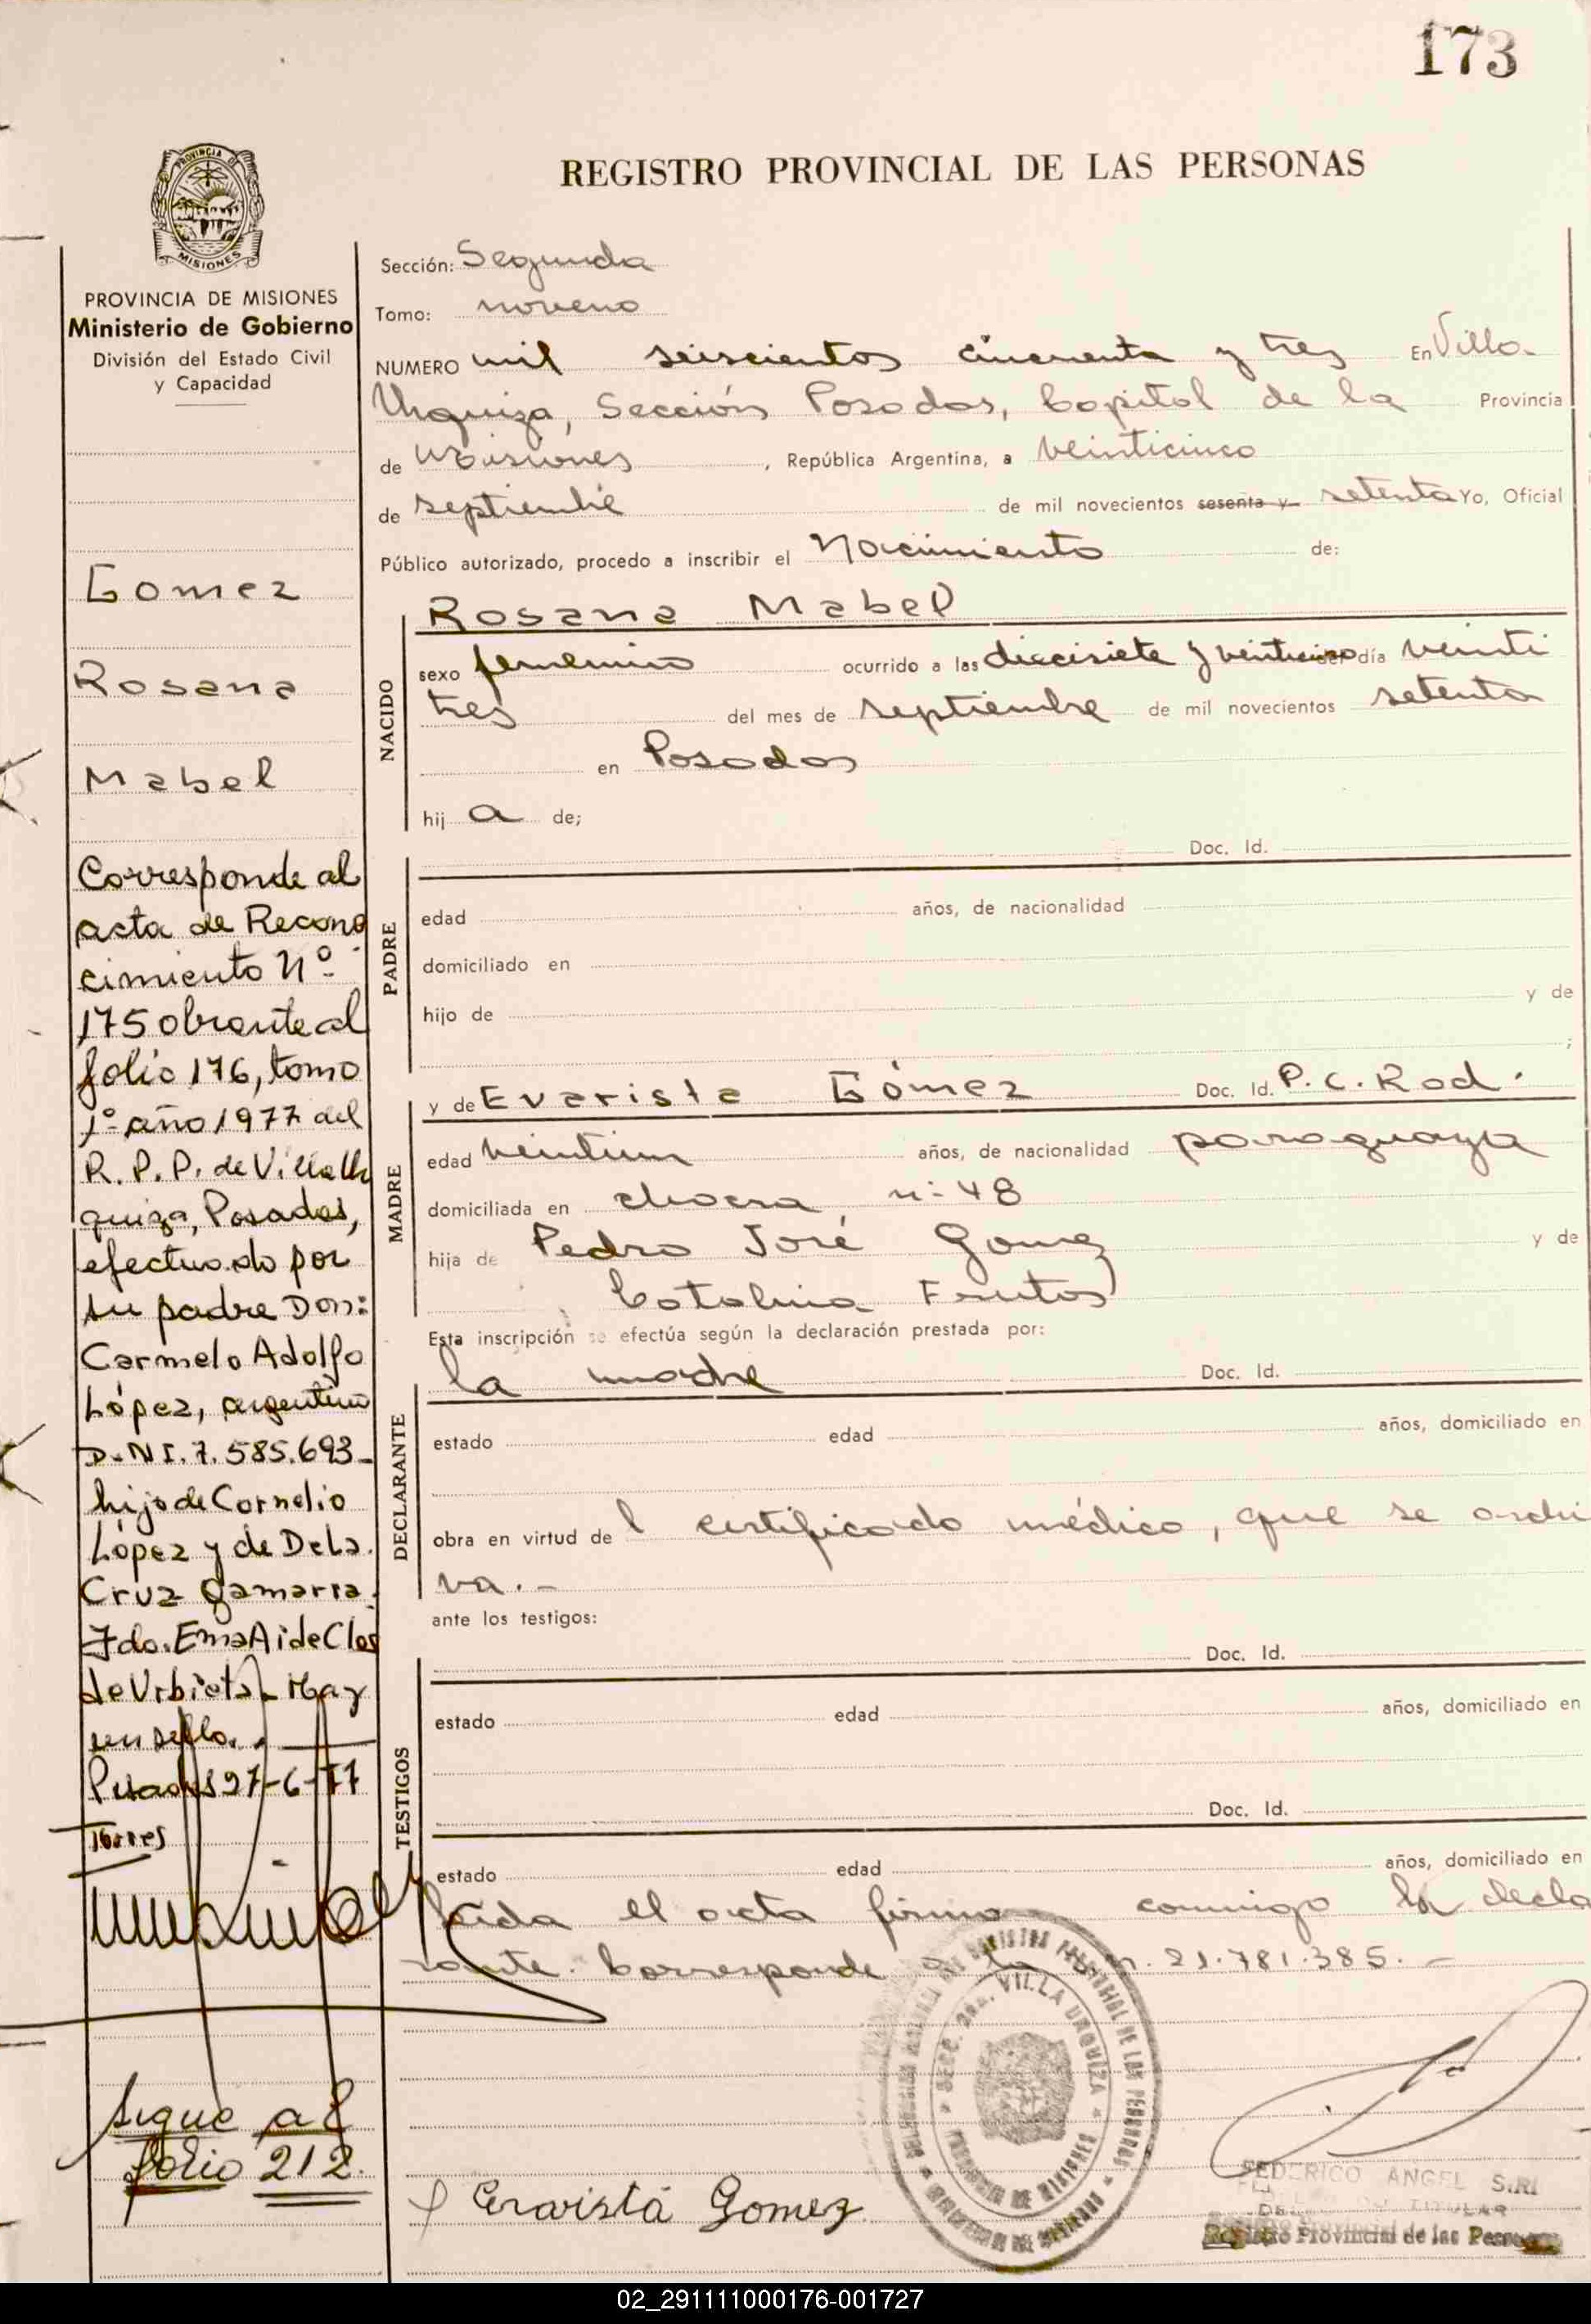 173
REGISTRO PROVINCIAL DE LAS PERSONAS
PROVINCIA DE
MISIONES
PROVINCIA DE MISIONES
Ministerio de Gobierno
División del Estado Civil
y Capacidad
Gomez
Rosana
Mabel
Corresponde al
acta de Recono
cimiento Nº
175 obrante al
folio 176, tomo
1º año 1977 del
R. P. P. de Villa Ur
quiza, Posadas,
efectuado por
su padre Don:
Carmelo Adolfo
López, argentino
D.N.I. 7.585.693-
hijo de Cornelio
López y de De La
Cruz Gamarra.
Fdo. Ema A. de
de Urbieta - Hay
un sello.
Posadas 27-6-77
Torres
sigue al
folio 212.
Sección: Segunda
Tomo: noveno
NUMERO mil seiscientos cincuenta y tres En Villa
Urquiza, Sección Posadas, Capital de la Provincia
de Misiones, República Argentina, a veinticinco
de septiembre de mil novecientos sesenta y setenta Yo, Oficial
Público autorizado, procedo a inscribir el Nacimiento de:
NACIDO
Rosana Mabel
sexo femenino ocurrido a las diecisiete y veinticinco día veinti
tres del mes de septiembre de mil novecientos setenta
en Posadas
hij a de;
PADRE
Doc. Id.
edad años, de nacionalidad
domiciliado en
hijo de y de
;
MADRE
y de Evarista Gómez Doc. Id. P. C. Rod.
edad veintiun años, de nacionalidad paraguaya
domiciliada en chacra nº 48
hija de Pedro José Gomez y de
Catalina Frutos
Esta inscripción se efectúa según la declaración prestada por:
DECLARANTE
la madre Doc. Id.
estado edad años, domiciliado en
obra en virtud de l certificado médico, que se archi
va.-
ante los testigos:
TESTIGOS
Doc. Id.
estado edad años, domiciliado en
Doc. Id.
estado edad años, domiciliado en
Leida el acta firma conmigo la decla
rante. Corresponde a la m. 21.781.385.-
SECC. 2da. VILLA URQUIZA
PROVINCIA DE MISIONES
Evarista Gomez
FEDERICO ANGEL
TITULAR
Registro Provincial de las
02_291111000176-001727